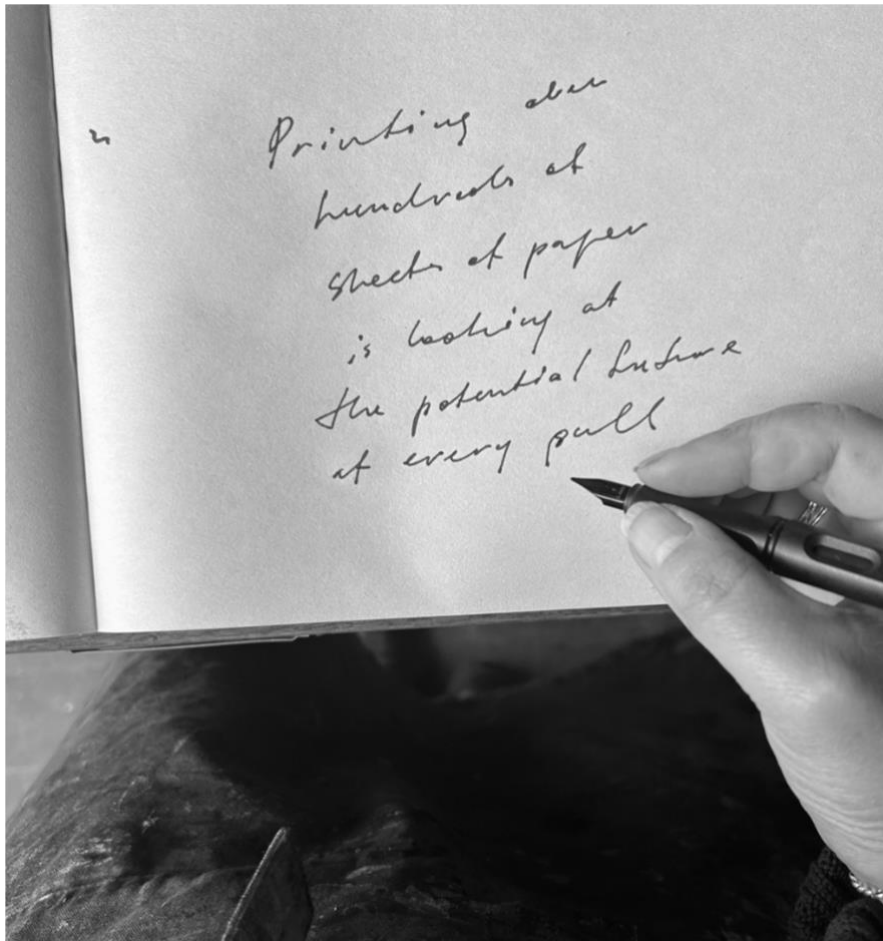 Printing
hundreds of
sheets of paper
is looking at
the potential future
at every pull